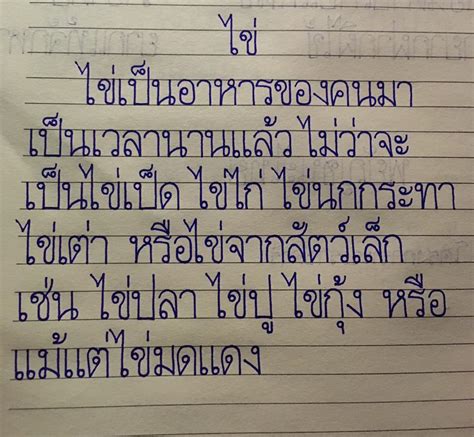 ไข่
ไข่เป็นอาหารของคนมา
เป็นเวลานานแล้ว ไม่ว่าจะ
เป็นไข่เป็ด ไข่ไก่ ไข่นกกระทา
ไข่เต่า หรือไข่จากสัตว์เล็ก
เช่น ไข่ปลา ไข่ปู ไข่กุ้ง หรือ
แม้แต่ไข่มดแดง